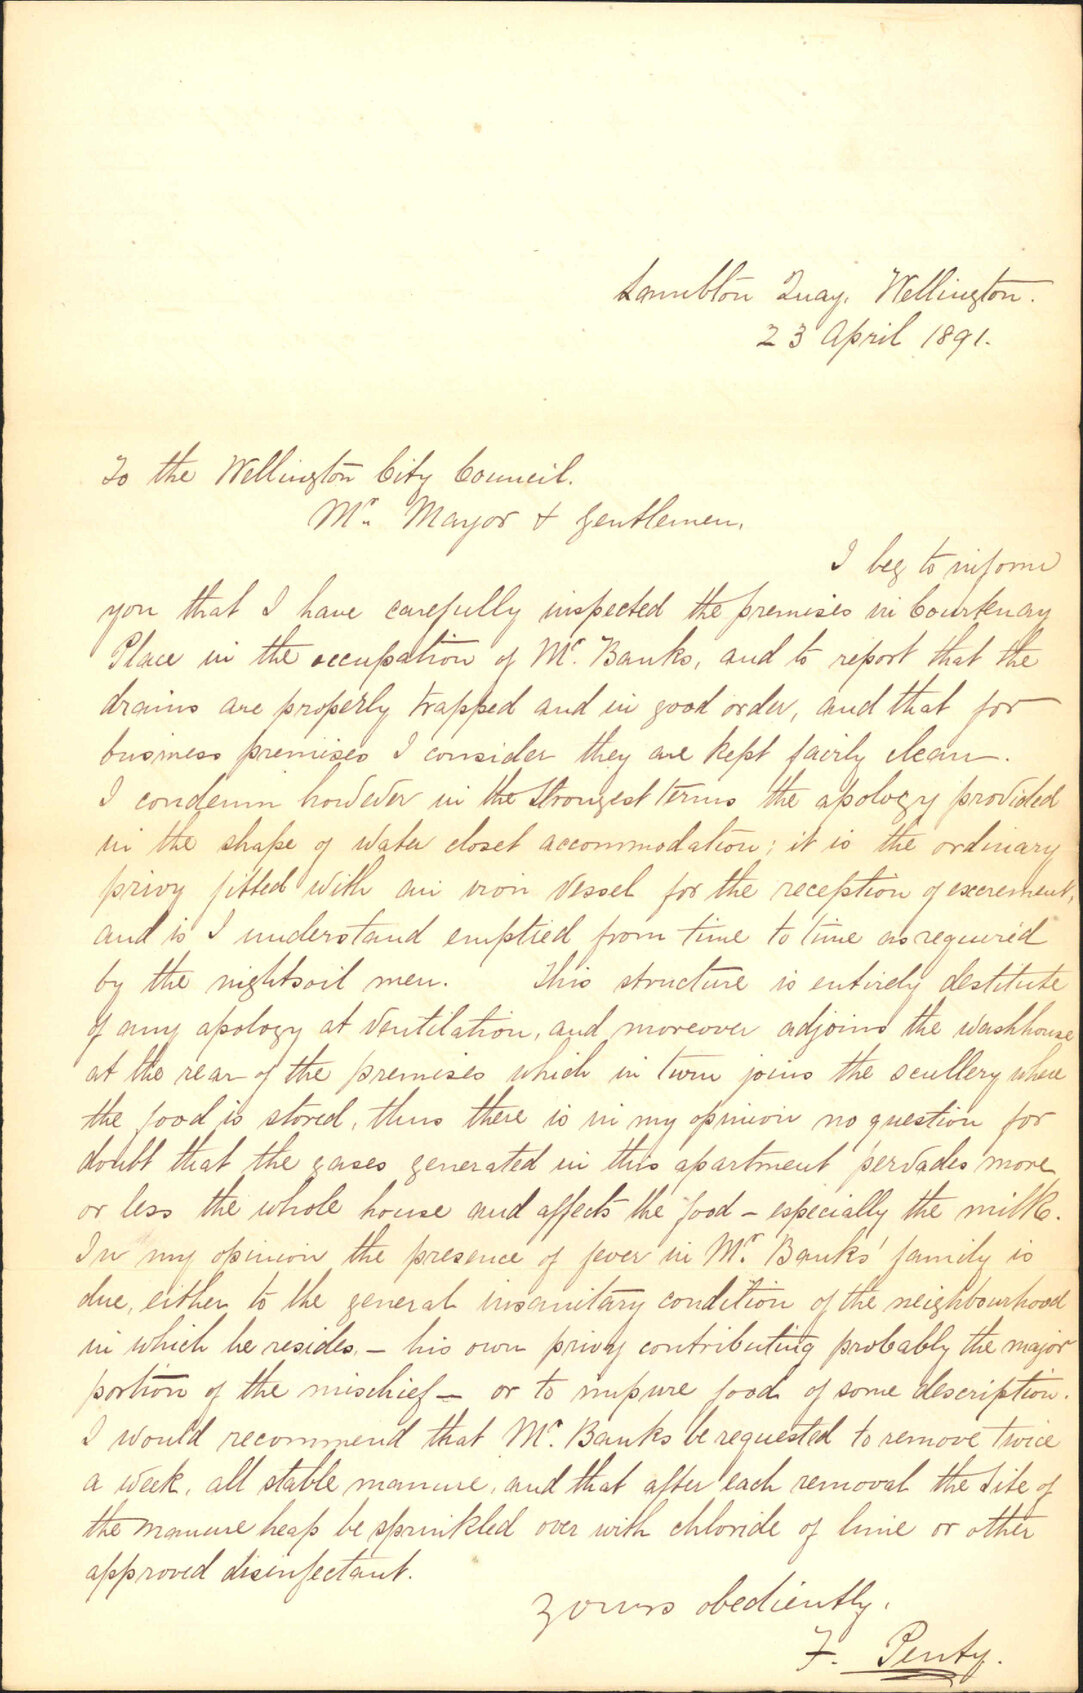 Lambton Quay, Wellington.
23 April 1891.
To the Wellington City Council.
Mr. Mayor & Gentlemen,
I beg to inform
you that I have carefully inspected the premises in Courtenay
Place in the occupation of Mr. Banks, and to report that the
drains are properly trapped and in good order, and that for
business premises I consider they are kept fairly clean.
I condemn however in the strongest terms the apology provided
in the shape of water closet accommodation; it is the ordinary
privy fitted with an iron vessel for the reception of excrement,
and is I understand emptied from time to time as required
by the nightsoil men. This structure is entirely destitute
of any apology at ventilation, and moreover adjoins the washhouse
at the rear of the premises which in turn joins the scullery where
the food is stored, thus there is in my opinion no question for
doubt that the gases generated in this apartment pervades more
or less the whole house and affects the food - especially the milk.
In my opinion the presence of fever in Mr. Banks' family is
due, either to the general insanitary condition of the neighbourhood
in which he resides, - his own privy contributing probably the major
portion of the mischief - or to impure food of some description.
I would recommend that Mr. Banks be requested to remove twice
a week, all stable manure, and that after each removal the site of
the manure heap be sprinkled over with chloride of lime or other
approved disinfectant.
Yours obediently,
F. Penty.